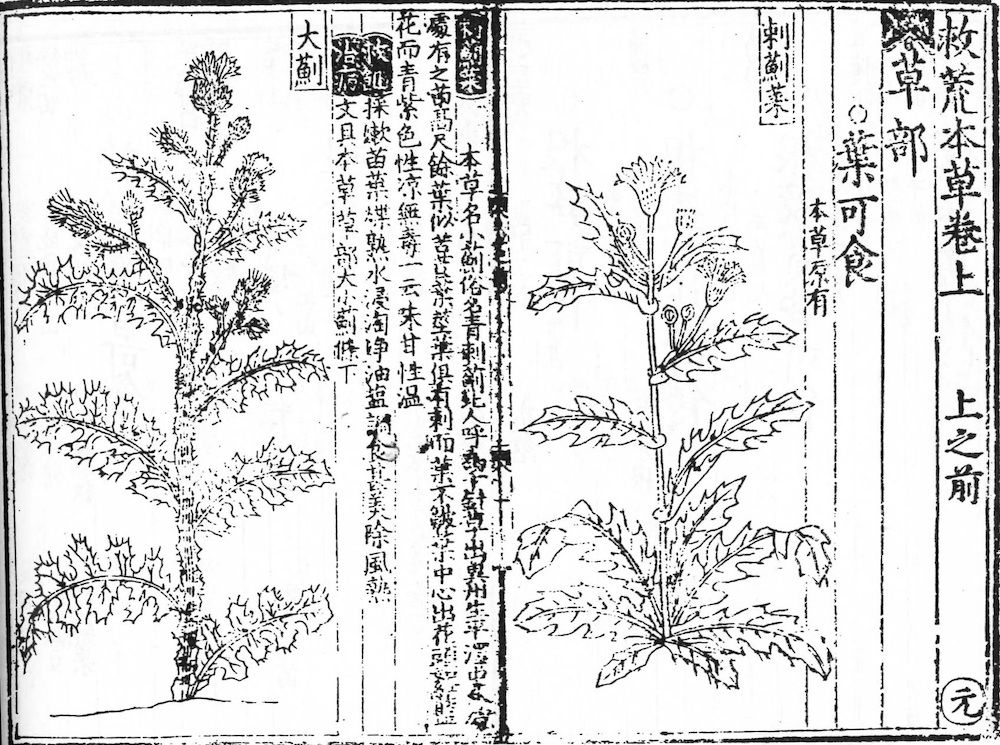 救荒本草卷上 上之前 元
草部
○葉可食
本草原有
刺薊菜
刺薊菜 本草名小薊俗名青刺薊北人呼為千針草出冀州生平澤中今處
處有之苗高尺餘葉似苦苣葉莖葉俱有刺而葉不皺葉中心出花頭如紅藍
花而青紫色性凉無毒一云味甘性温
救飢 採嫩苗葉煠熟水浸淘淨油塩調食甚美除風熱
治病 文具本草草部大小薊條下
大薊